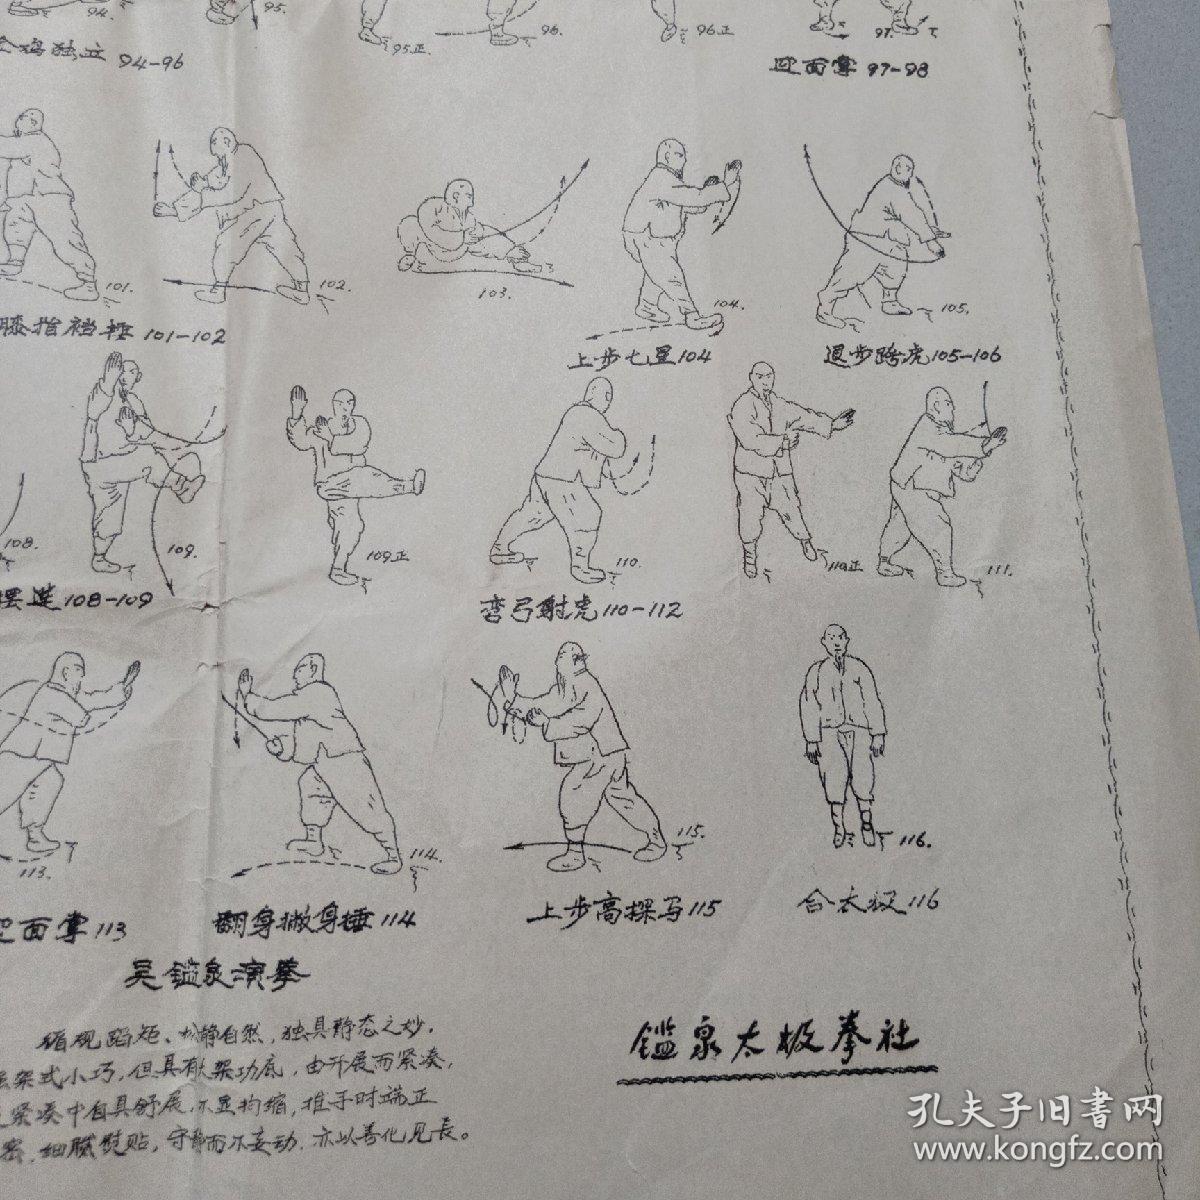 94.
95.
95正.
96.
96正
97.
金鸡独立 94-96
迎面掌 97-98
101.
102.
103.
104.
105.
膝指裆捶 101-102
上步七星 104
退步跨虎 105-106
108.
109.
109正
110.
110正
111.
摆莲 108-109
弯弓射虎 110-112
113.
114.
115.
116.
迎面掌 113
翻身撇身捶 114
上步高探马 115
合太极 116
吴鑑泉演拳
循规蹈矩、松静自然,独具静态之妙,
架式小巧,但具有大架功底,由开展而紧凑,
紧凑中自具舒展,不显拘缩,推手时端正
密,细腻熨贴,守静而不妄动,亦以善化见长。
鑑泉太极拳社
孔夫子旧书网
www.kongfz.com